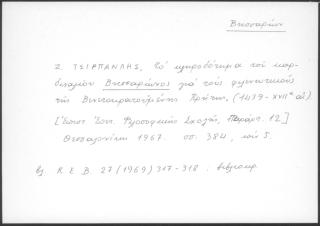 Βησσαρίων
Ζ. ΤΣΙΡΠΑΝΛΗΣ, Τὸ κληροδότημα τοῦ καρ-
διναλίου Βησσαρίωνος γιὰ τοὺς φιλενωτικοὺς
τῆς Βενετοκρατούμενης Κρήτης, (1439 - XVIIᵉ αἰ.)
[Ἐπιστ. Ἐπετ. Φιλοσοφικῆς Σχολῆς, Παράρτ. 12]
Θεσσαλονίκη 1967. σσ. 384, πίν 5.
βλ. R.E.B. 27 (1969) 317-318. βιβλιοκρ.